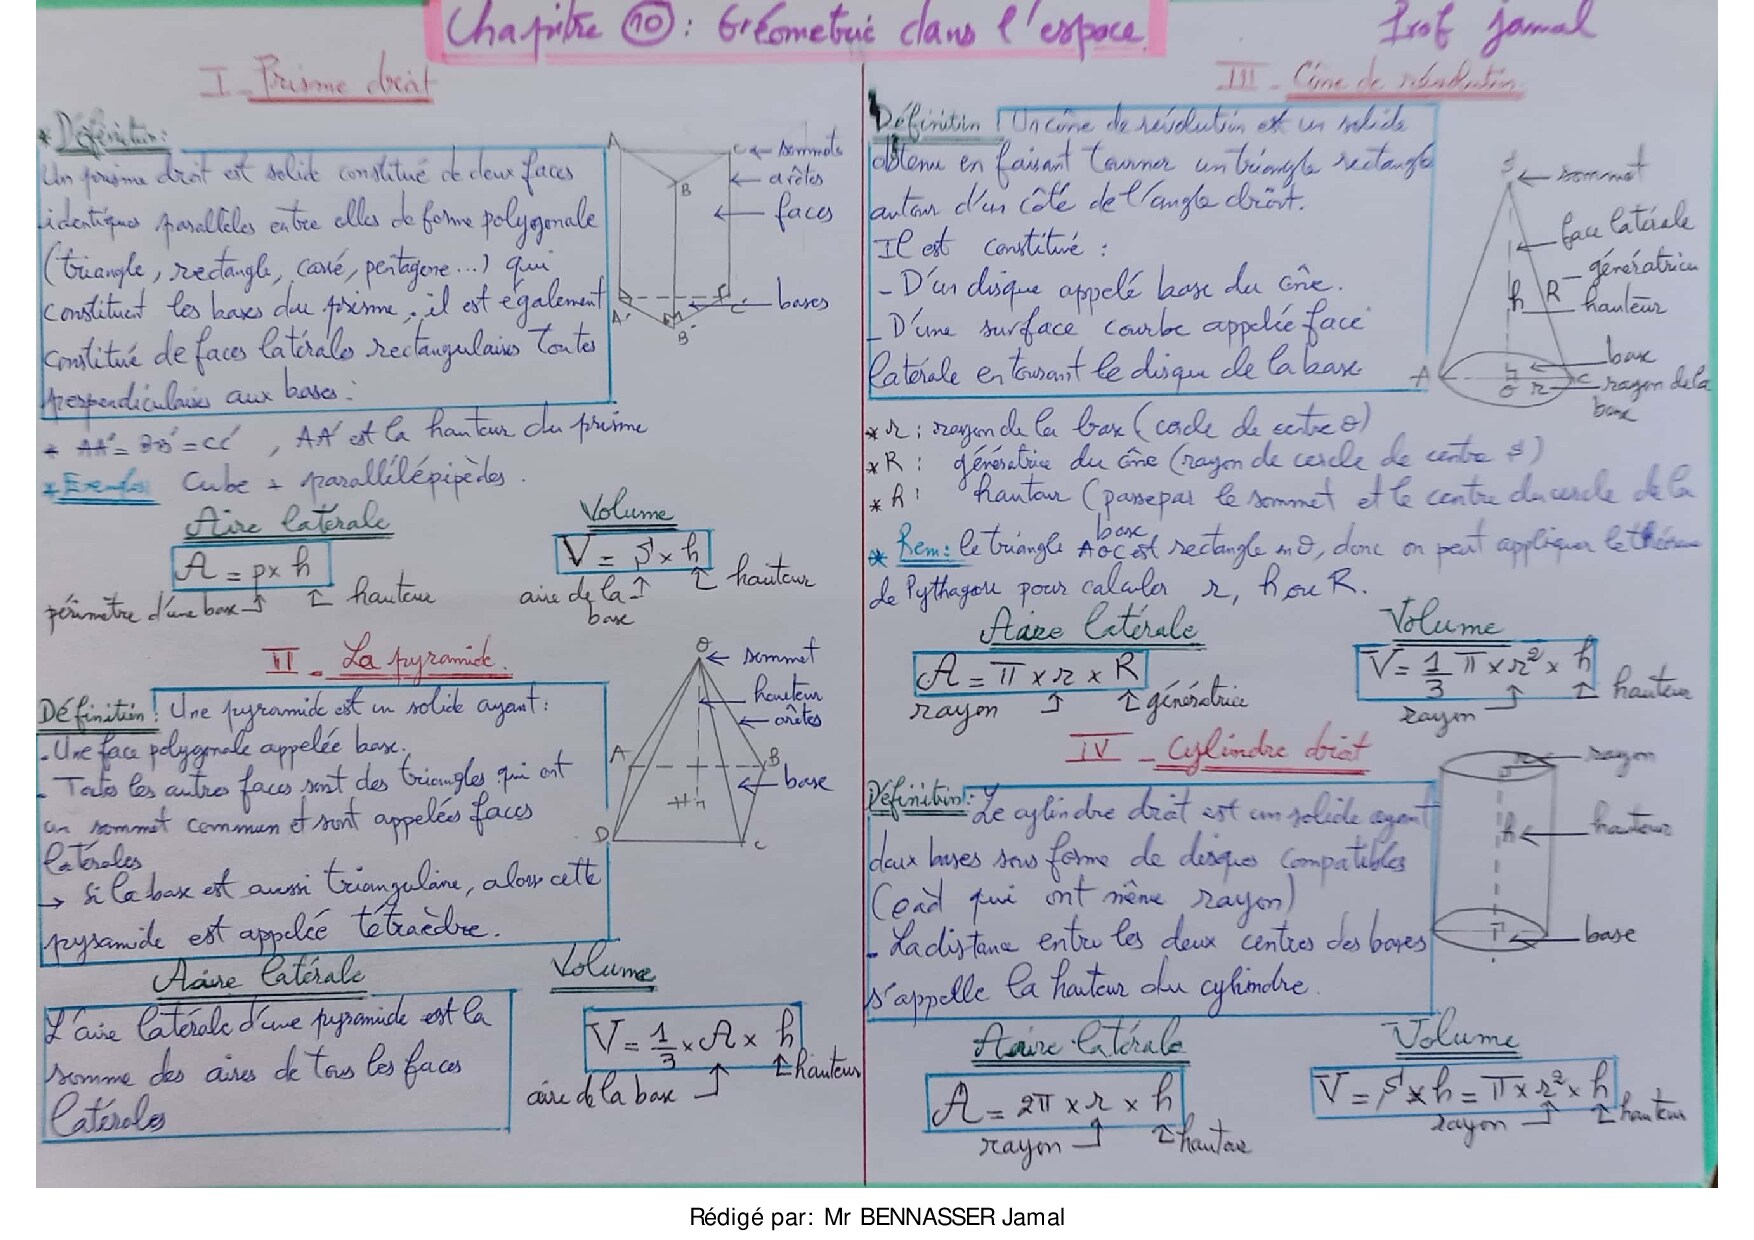 Chapitre 10 : Géometrie dans l'espace
Prof Jamal
I - Prisme droit
* Définition:
Un prisme droit est solide constitué de deux faces
identiques parallèles entre elles de forme polygonale
(triangle, rectangle, carré, pentagone...) qui
constituent les bases du prisme, il est également
constitué de faces latérales rectangulaires toutes
perpendiculaires aux bases.
A
C
B
A'
C'
B'
sommets
arêtes
faces
bases
* AA' = BB' = CC' , AA' est la hauteur du prisme
* Exemples: Cube + parallélépipèdes.
Aire latérale
A = p x h
périmètre d'une base
hauteur
Volume
V = S x h
aire de la base
hauteur
II - La pyramide.
Définition: Une pyramide est un solide ayant:
- Une face polygonale appelée base.
- Toutes les autres faces sont des triangles qui ont
un sommet commun et sont appelées faces
latérales
→ Si la base est aussi triangulaire, alors cette
pyramide est appelée tétraèdre.
O
A
B
C
D
H
sommet
hauteur
arêtes
base
Aire latérale
L'aire latérale d'une pyramide est la
somme des aires de tous les faces
latérales
Volume
V = 1/3 x A x h
aire de la base
hauteur
III - Cône de révolution
Définition : Un cône de révolution est un solide
obtenu en faisant tourner un triangle rectangle
autour d'un côté de l'angle droit.
Il est constitué :
- D'un disque appelé base du cône.
- D'une surface courbe appelée face
latérale entourant le disque de la base
S
sommet
face latérale
génératrice
h
R
hauteur
base
A
O
r
C
rayon de la base
* r : rayon de la base (cercle de centre O)
* R : génératrice du cône (rayon de cercle de centre S)
* h : hauteur (passe par le sommet et le centre du cercle de la
base
* Rem: le triangle AOC est rectangle en O, donc on peut appliquer le théorème
de Pythagore pour calculer r, h ou R.
Aire latérale
A = π x r x R
rayon
génératrice
Volume
V = 1/3 π x r² x h
rayon
hauteur
IV - Cylindre droit
Définition: Le cylindre droit est un solide ayant
deux bases sous forme de disques compatibles
(càd qui ont même rayon)
- La distance entre les deux centres des bases
s'appelle la hauteur du cylindre.
rayon
h
hauteur
base
Aire latérale
A = 2π x r x h
rayon
hauteur
Volume
V = S x h = π x r² x h
rayon
hauteur
Rédigé par: Mr BENNASSER Jamal